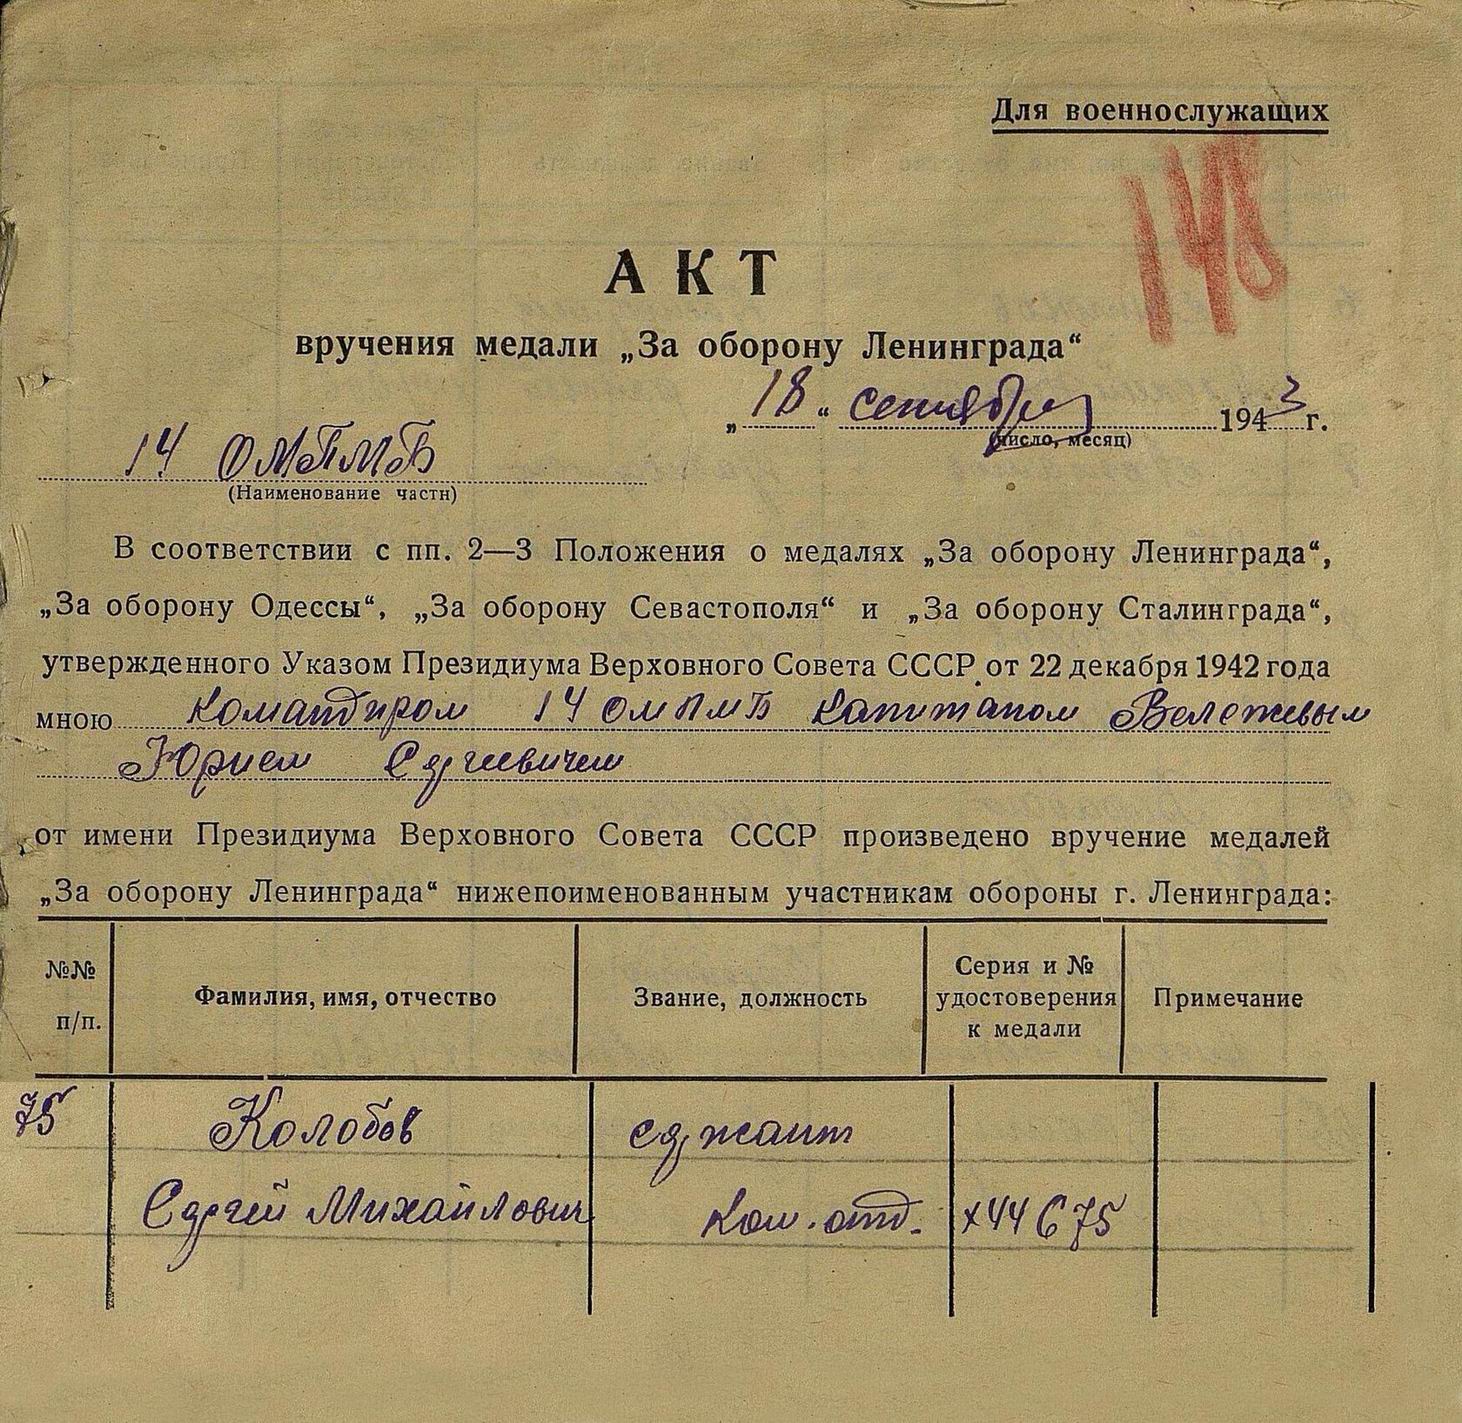 Для военнослужащих
148
АКТ
вручения медали „За оборону Ленинграда“
„18“ сентября 1943 г.
(число, месяц)
14 ОМПМБ
(Наименование части)
В соответствии с пп. 2—3 Положения о медалях „За оборону Ленинграда“,
„За оборону Одессы“, „За оборону Севастополя“ и „За оборону Сталинграда“,
утвержденного Указом Президиума Верховного Совета СССР от 22 декабря 1942 года
мною командиром 14 ОМПМБ капитаном
Юрием Сергеевичем
от имени Президиума Верховного Совета СССР произведено вручение медалей
„За оборону Ленинграда“ нижепоименованным участникам обороны г. Ленинграда:
№№ п/п. Фамилия, имя, отчество Звание, должность Серия и № удостоверения к медали Примечание
75 Колобов сержант
Сергей Михайлович ком. отд. х44675